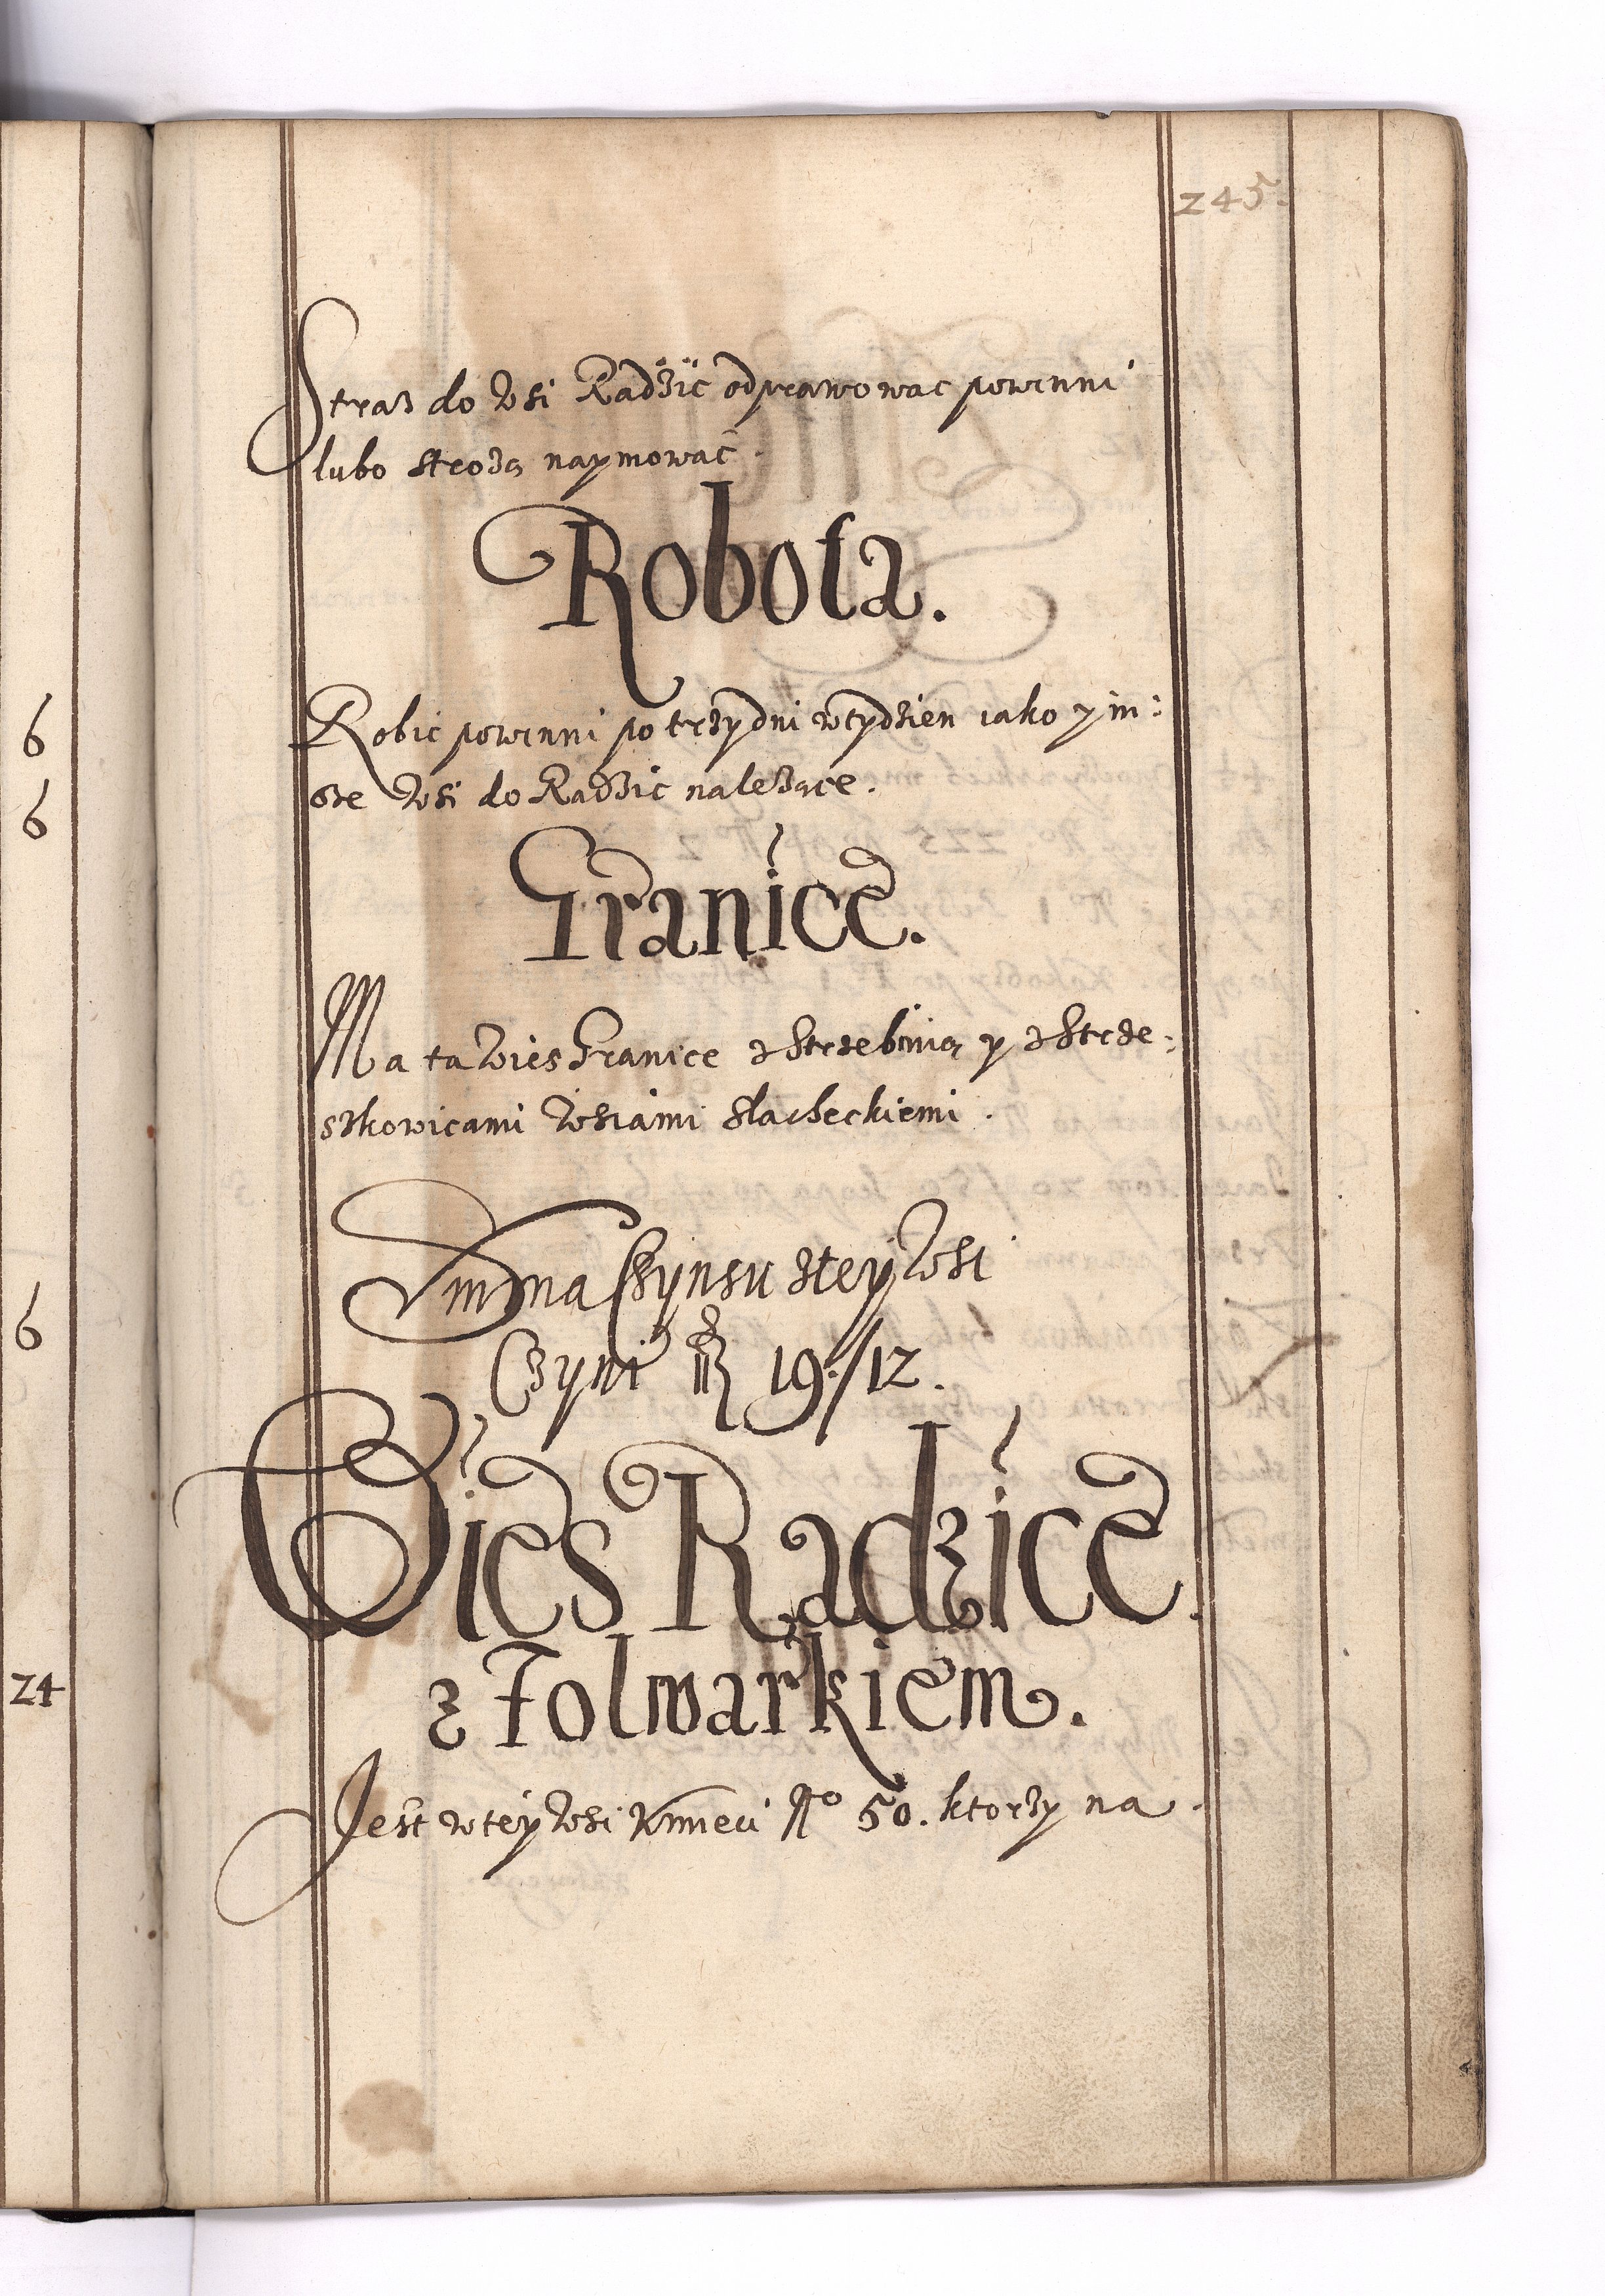 245.
Straz do Wsi Radzic odprawowac powinni
lubo strożą naymowac.
Robota.
Robic powinni po trzy dni w tydzien iako y in:
sze Wsi do Radzic należące.
Granice.
Ma ta Wies Granice z Strzebinią y z Strze:
szkowicami Wsiami slacheckiemi.
Summa Czynsu s tey Wsi
Czyni 19./12.
Wies Radzice
z Folwarkiem.
Jest w tey Wsi Kmieci No 50. ktorzy na.
6
6
6
24